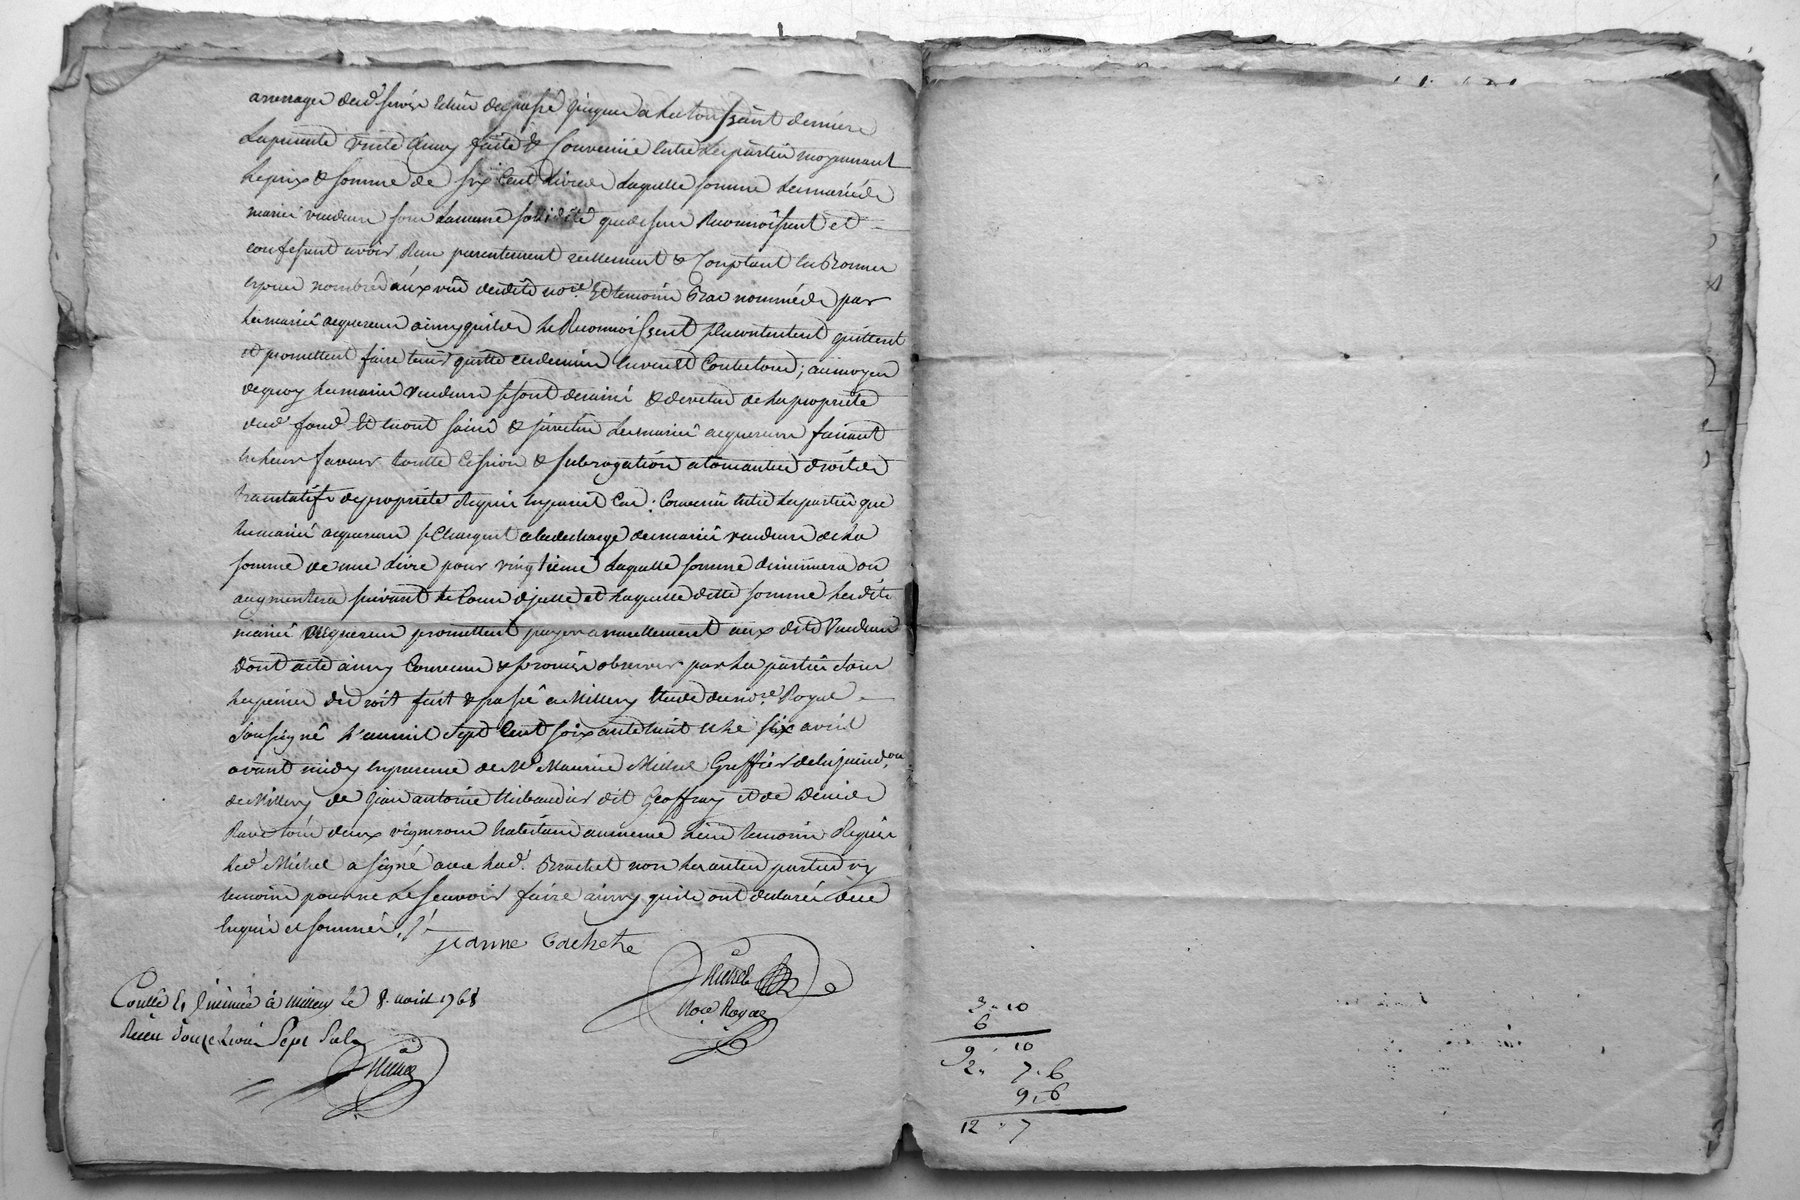 arrerages dud. servis et lui du passé jusques a la toussaint derniere
La presente vente ainsy faite & Convenüe entre les parties moyennant
Le prix & somme de six Cent Livres Laquelle somme Les mariés
mariés vendeurs sous La meme solidité que dessus Reconnoissent et
confessent avoir Reçu presentement reellement & Comptant en Bonnes
especes nombrées aux vüe dudit nore. Et temoins Bas nommés par
Les mariés acquereurs ainsy quils Le Reconnoissent sen contentent quittent
et promettent faire tenir quitte envers et Contre tous ; au moyen
de quoy Les mariés Vendeurs se sont demis & devetus de La propriété
dud. fond Et en ont saisis & jnvetus Les mariés acquereurs faisant
en Leur faveur toutte Cession & subrogation et tomantes droits
translatifs de propriété Requis en pareil Cas : Convenu entre Les parties que
Les mariés acquereurs se Chargent a la decharge des mariés vendeurs de La
somme de une Livre pour vingtieme Laquelle somme diminuera ou
augmentera suivant Le Cours d'jcelle et Laquelle ditte somme Lesdits
mariés acquereurs promettent payer annuellement aux dits Vendeurs
Dont acte ainsy Convenu & promis observer par Les parties sous
Les peines de Droit fait & passé a Millery Etude du nore. Royal
soussigné L'an mil sept Cent soixante huit & Le six avril
avant midy en presence de Me Maurice Michel Greffier de La juridon.
de Millery de Jean antoine thibaudier dit Geoffray et de Denis
Rave tous deux vignerons habitans au meme Lieu temoins Requis
Led. Michel a signé avec Lad. Brachet non Les autres parties ny
temoins pour ne Le scavoir faire ainsy quils ont declaré de ce
Enquis et sommés ./.
jeanne Bachete
Michel
Nore Royal
Conllé & Insinué à Millery Le 8. avril 1768
Reçu Douze Livres Sept Sols
Michel
3 " 10
6
9 . 10
2 " 7 . 6
9 . 6
12 . 7